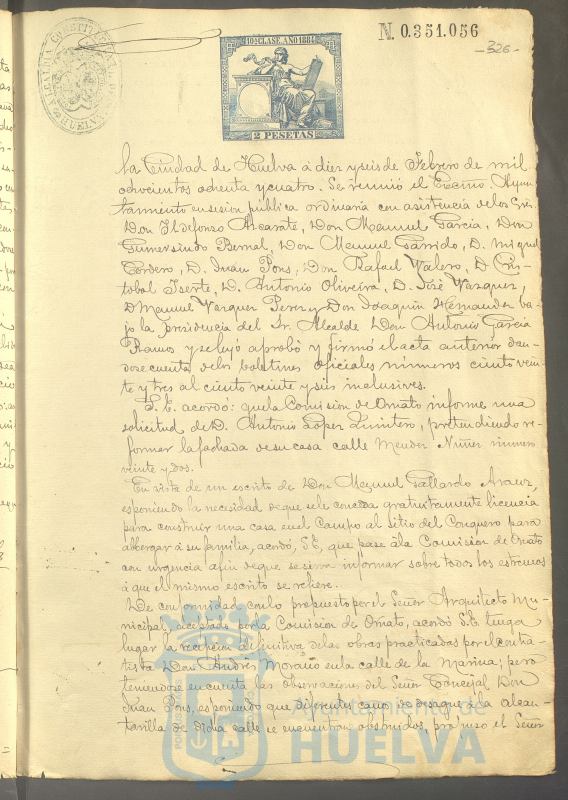 ALCALDIA CONSTITUCIONAL
HUELVA
10ª CLASE. AÑO 1884
2 PESETAS
N. 0.351.056
-326-
La Ciudad de Huelva á diez y seis de Febrero de mil
ochocientos ochenta y cuatro. Se reunió el Excmo. Ayun-
tamiento en sesion pública ordinaria con asistencia de los Sres.
Don Ildefonso Alcarate, Don Manuel Garcia, Don
Gumersindo Bernal, Don Manuel Garrido, D. Miguel
Cordero, D. Juan Pons, Don Rafael Valero, D. Cris-
tobal Iserte, D. Antonio Oliveira, D. José Vazquez,
D. Manuel Vazquez Perez y Don Joaquin Hernandez ba-
jo la presidencia del Sr. Alcalde Don Antonio Garcia
Ramos y se leyó aprobó y firmó el acta anterior dan-
dose cuenta de los boletines oficiales números ciento vein-
te y tres al ciento veinte y seis inclusives.
S. E. acordó: que la Comision de Ornato informe una
solicitud de D. Antonio Lopez Quintero, pretendiendo re-
formar la fachada de su casa calle Mendez Nuñez número
veinte y dos.
En vista de un escrito de Don Manuel Gallardo Arauz,
esponiendo la necesidad de que se le conceda gratuitamente licencia
para construir una casa en el Campo al sitio del Conquero para
albergar á su familia, acordó, S.E, que pase á la Comision de Ornato
con urgencia afin de que se sirva informar sobre todos los estremos
á que el mismo escrito se refiere.
De conformidad con lo propuesto por el Señor Arquitecto Mu-
nicipal, y aceptado por la Comision de Ornato, acordó S.E. tenga
lugar la recepcion definitiva de las obras practicadas por el contra-
tista Don Andrés Moraño en la calle de la Marina; pero
teniendose en cuenta las observaciones del Señor Concejal Don
Juan Pons, esponiendo que diferentes caños de desague á la alcan-
tarilla de dicha calle se encuentran obstruidos, propuso el Señor
Ayuntamiento de
HUELVA